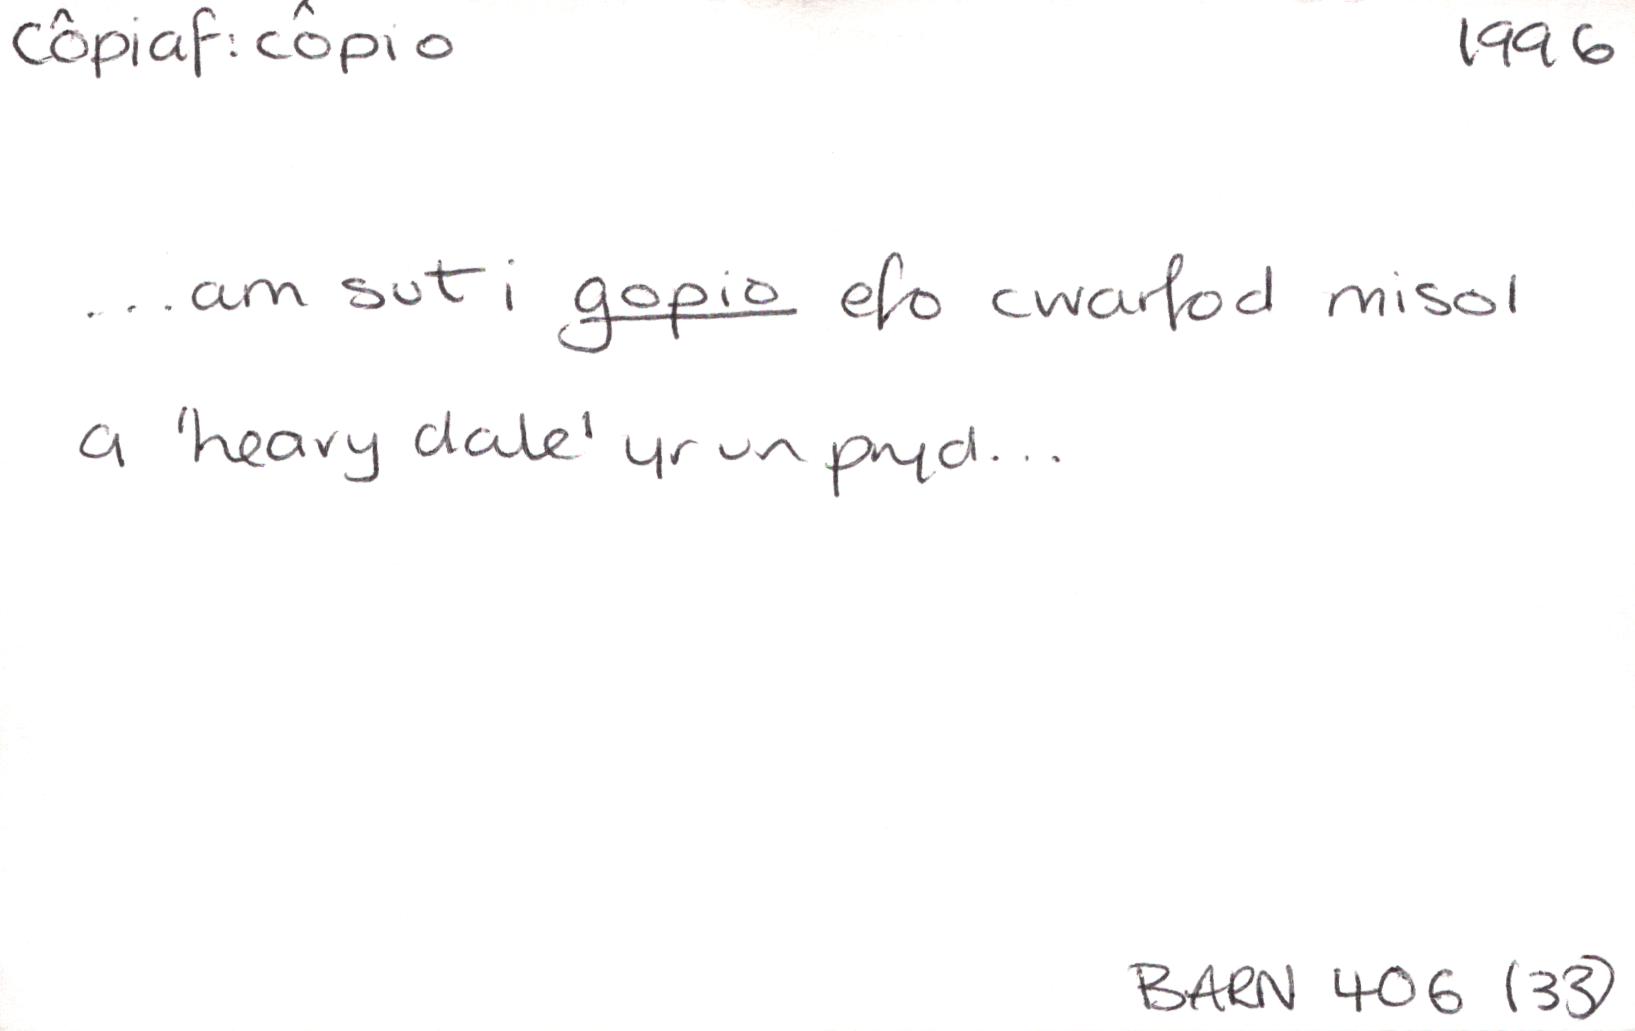 côpiaf: côpio 1996
...am sut i gopio efo cwarfod misol
a 'heavy date' yr un pryd...
BARN 406 (33)